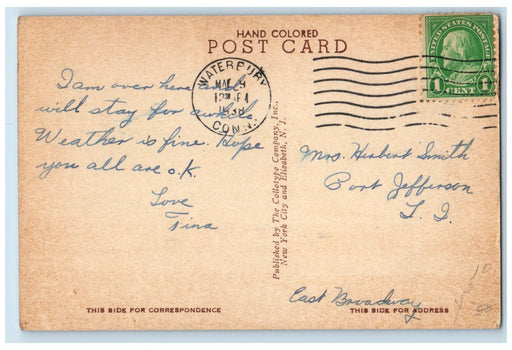 HAND COLORED
POST CARD
UNITED STATES POSTAGE
1 CENT 1
WATERBURY
MAY 9
1938
CONN.
I am over here and
will stay for awhile
Weather is fine. Hope
you all are o.K
Love
Tina
Published by The Collotype Company, Inc.,
New York City and Elizabeth, N. J.
Mrs. Herbert Smith
Port Jefferson
L. I.
East Broadway
THIS SIDE FOR CORRESPONDENCE
THIS SIDE FOR ADDRESS
10